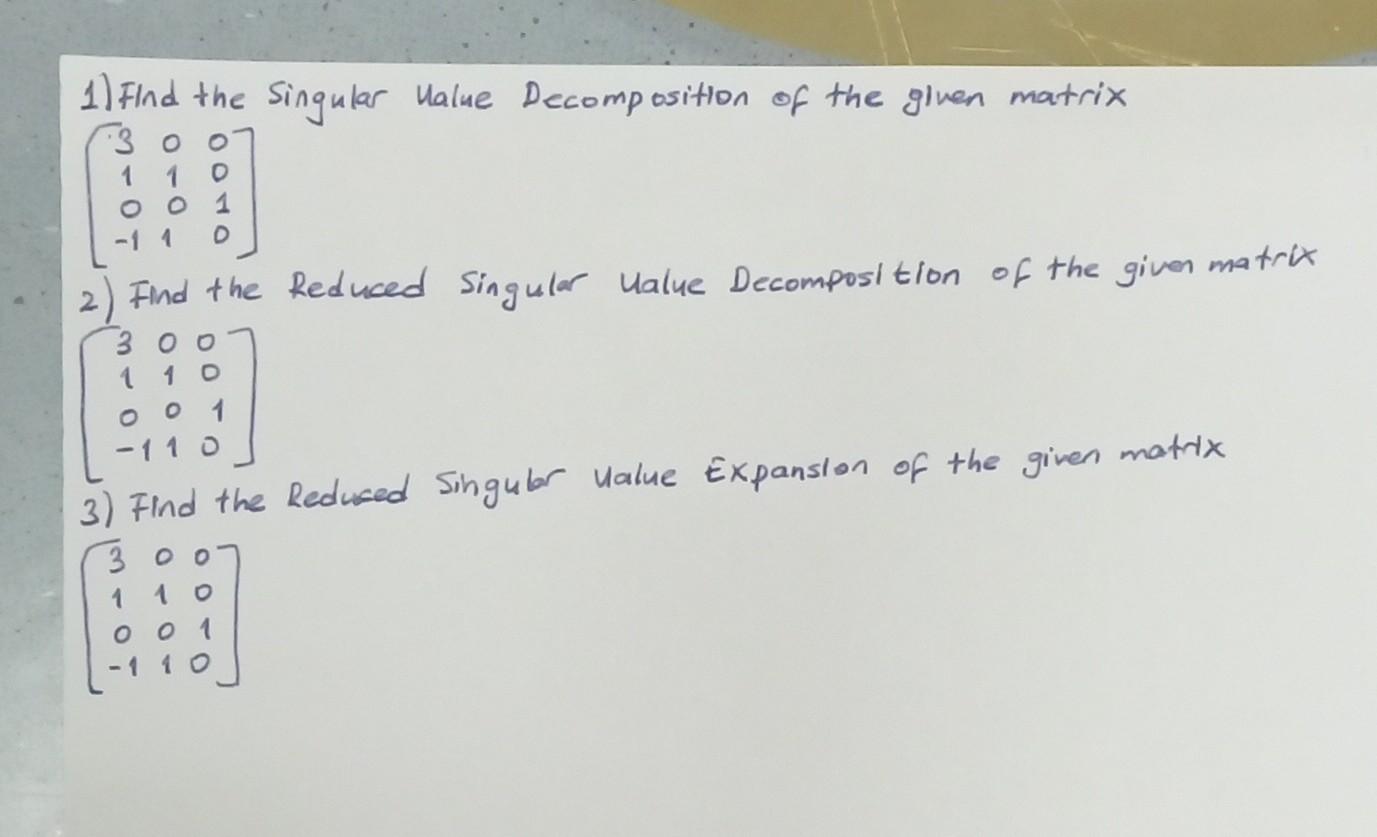 1) Find the Singular Value Decomposition of the given matrix
3 0 0
1 1 0
0 0 1
-1 1 0
2) Find the Reduced Singular Value Decomposition of the given matrix
3 0 0
1 1 0
0 0 1
-1 1 0
3) Find the Reduced Singular Value Expansion of the given matrix
3 0 0
1 1 0
0 0 1
-1 1 0